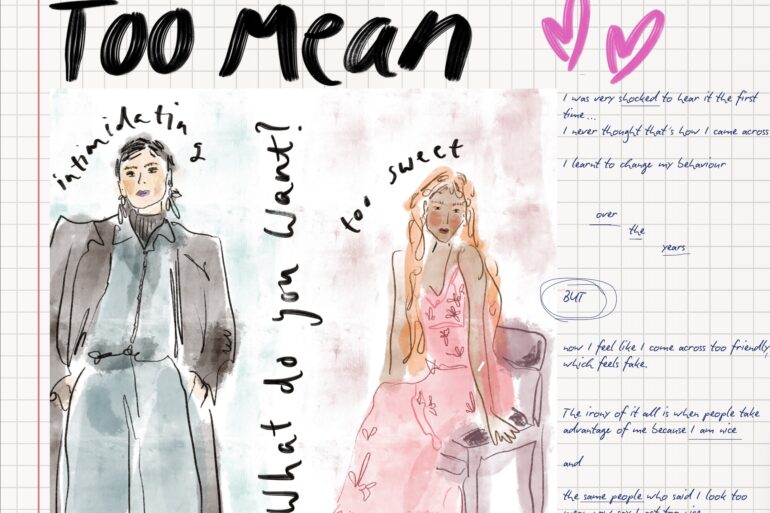 Too Mean
intimidating
What do you want?
too sweet
I was very shocked to hear it the first
time...
I never thought that's how I came across
I learnt to change my behaviour
over
the
years
BUT
now I feel like I come across too friendly,
which feels fake.
The irony of it all is when people take
advantage of me because I am nice
and
the same people who said I look too